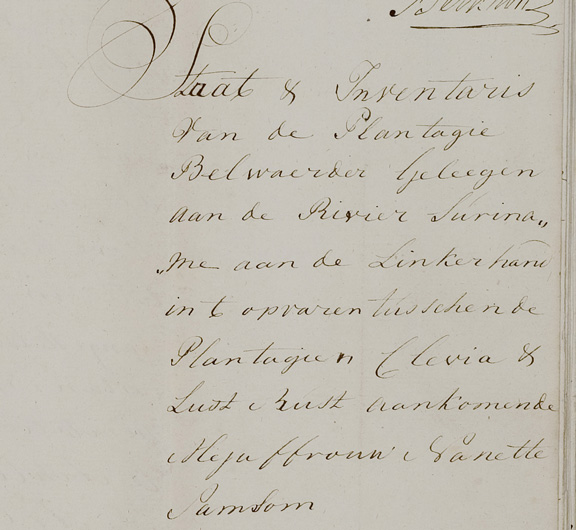 Staat & Inventaris
Van de Plantagie
Belwaerder Geleegen
aan de Rivier Surina„
„me aan de Linkerhand
in t opvaren tusschen de
Plantagien Clevia &
Lust & Rust aankomende
Mejuffrouw Nanette
Samsom